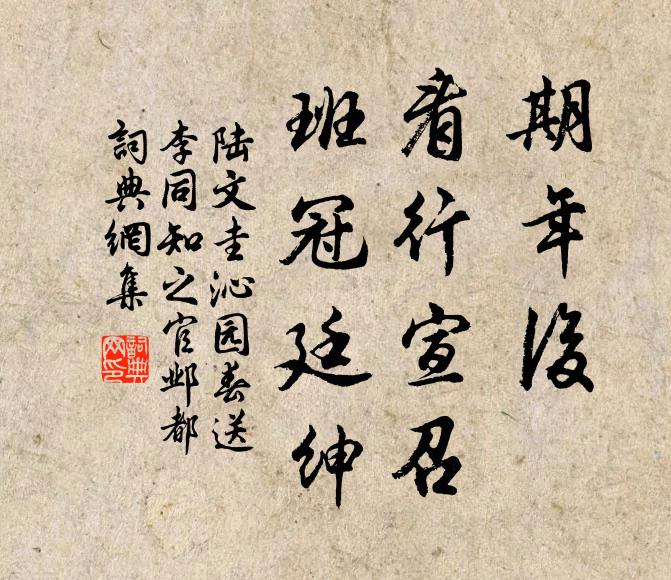 期年後
看行宣召
班冠廷紳
陆文圭沁园春送
李同知之官邺都
詞典網集
詞典
网印